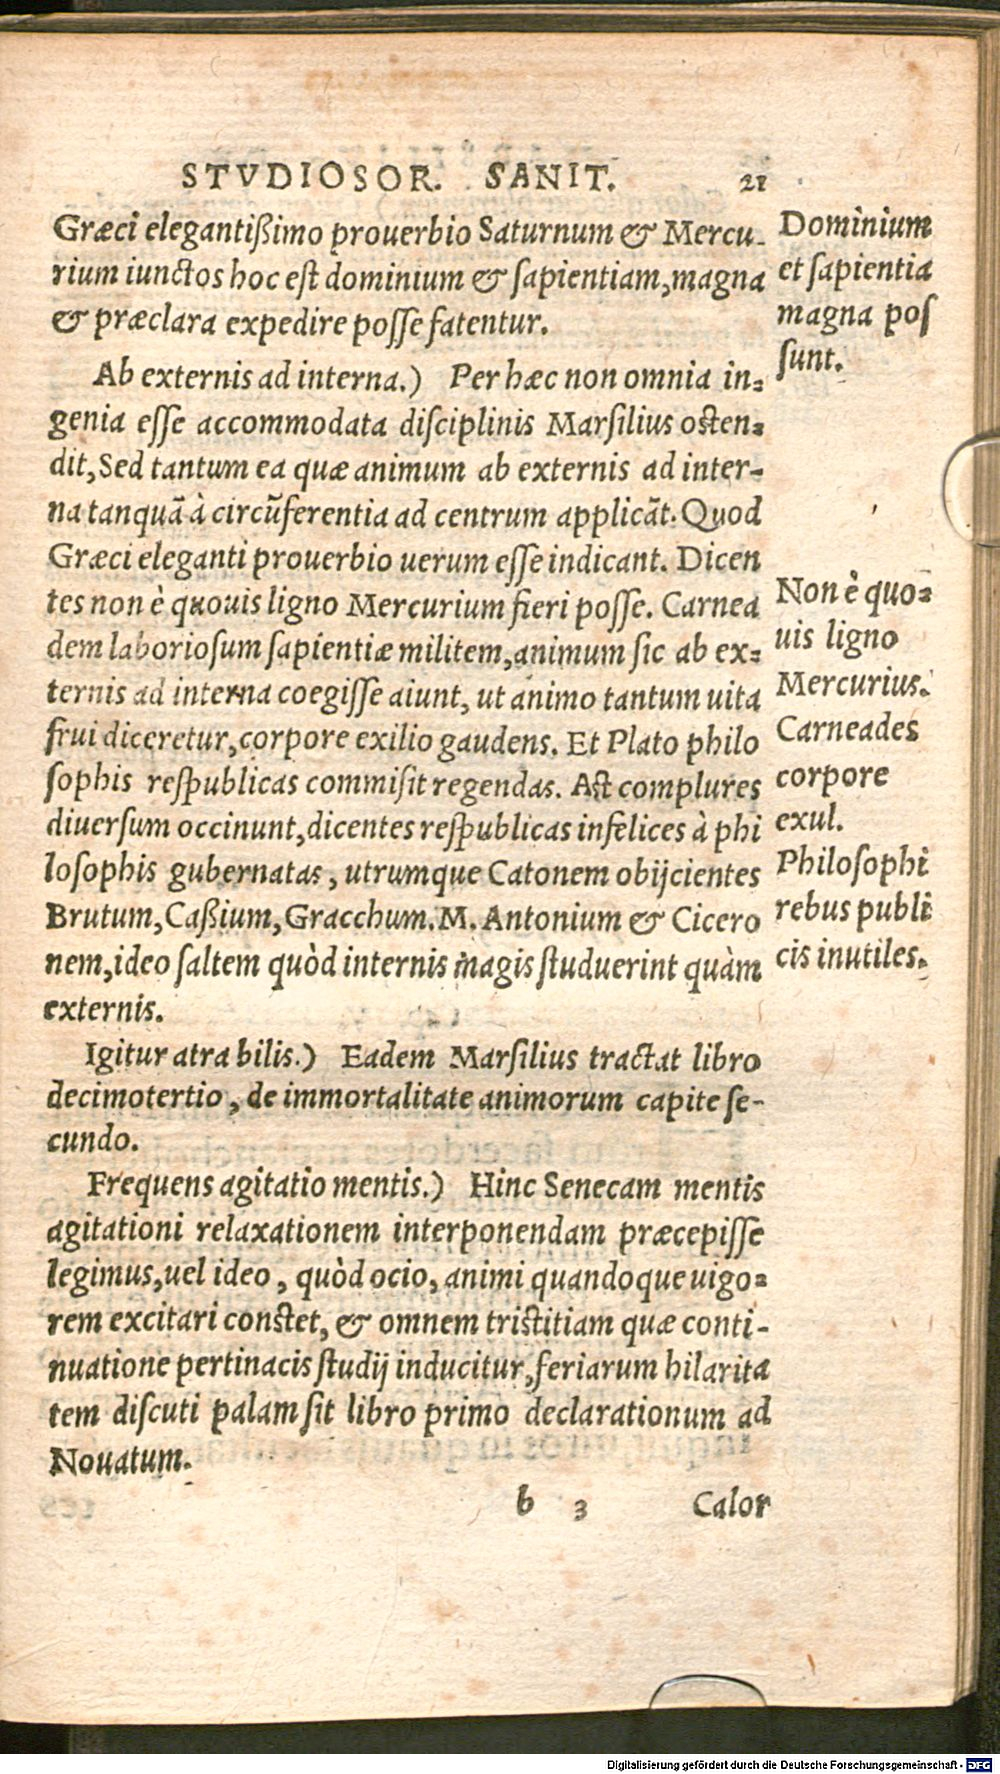 STVDIOSOR. SANIT. 21
Græci elegantißimo prouerbio Saturnum & Mercu-
rium iunctos hoc est dominium & sapientiam, magna
& præclara expedire posse fatentur.
Ab externis ad interna.) Per hæc non omnia in-
genia esse accommodata disciplinis Marsilius osten-
dit, Sed tantum ea quæ animum ab externis ad inter-
na tanquā à circūferentia ad centrum applicāt. Quod
Græci eleganti prouerbio uerum esse indicant. Dicen
tes non è quouis ligno Mercurium fieri posse. Carnea
dem laboriosum sapientiæ militem, animum sic ab ex-
ternis ad interna coegisse aiunt, ut animo tantum uita
frui diceretur, corpore exilio gaudens. Et Plato philo
sophis respublicas commisit regendas. Ast complures
diuersum occinunt, dicentes respublicas infelices à phi
losophis gubernatas, utrumque Catonem obijcientes
Brutum, Caßium, Gracchum. M. Antonium & Cicero
nem, ideo saltem quòd internis magis studuerint quàm
externis.
Igitur atra bilis.) Eadem Marsilius tractat libro
decimotertio, de immortalitate animorum capite se-
cundo.
Frequens agitatio mentis.) Hinc Senecam mentis
agitationi relaxationem interponendam præcepisse
legimus, uel ideo, quòd ocio, animi quandoque uigo-
rem excitari constet, & omnem tristitiam quæ conti-
nuatione pertinacis studij inducitur, feriarum hilarita
tem discuti palam sit libro primo declarationum ad
Nouatum.
b 3 Calor
Dominium
et sapientia
magna pos
sunt.
Non è quo-
uis ligno
Mercurius.
Carneades
corpore
exul.
Philosophi
rebus publi
cis inutiles.
Digitalisierung gefördert durch die Deutsche Forschungsgemeinschaft - DFG